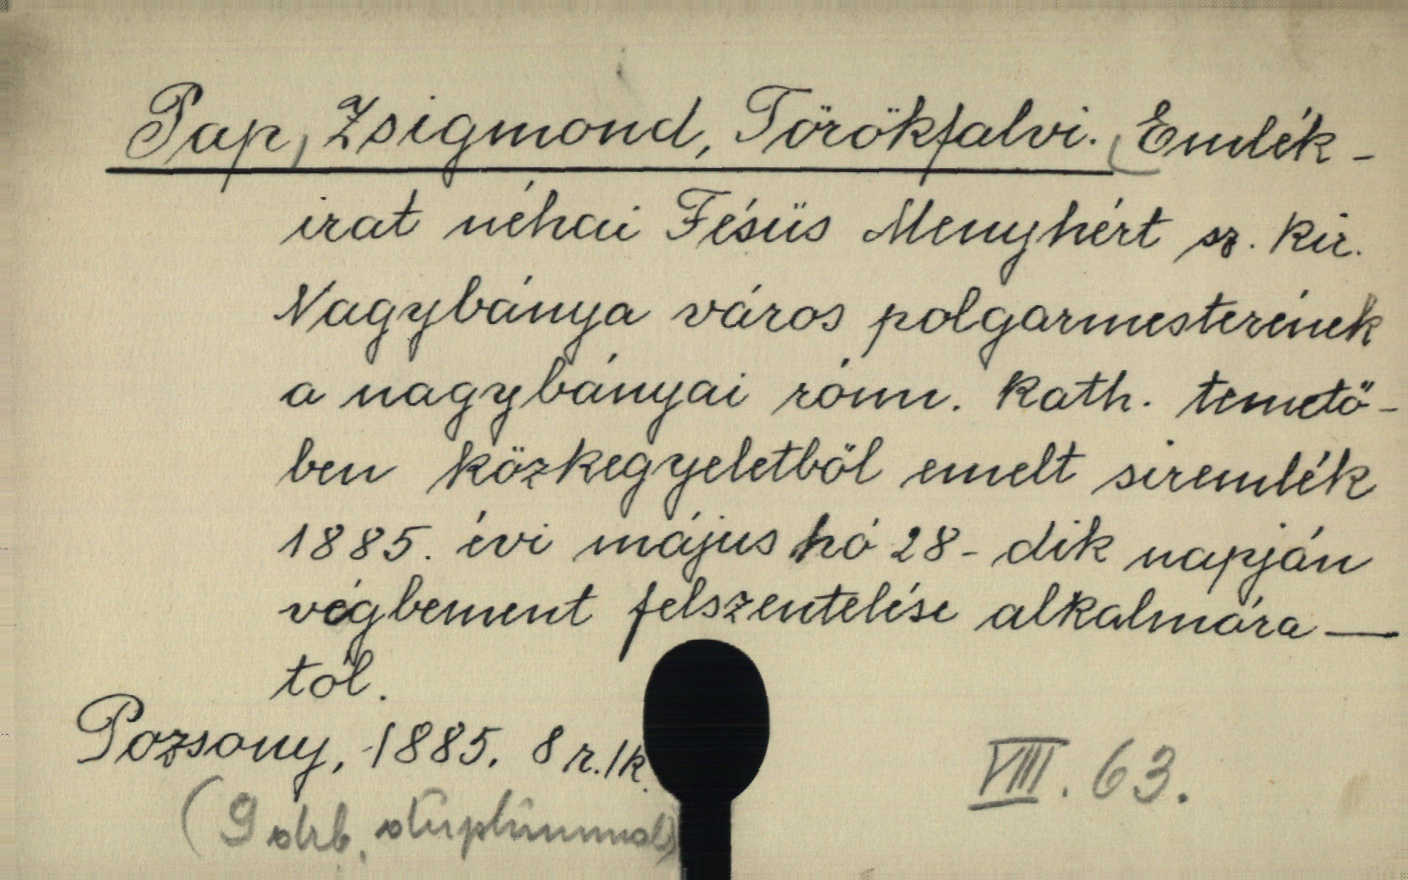 Pap, Zsigmond, Törökfalvi. (Emlék-
irat néhai Fésüs Menyhért sz. kir.
Nagybánya város polgarmesterének
a nagybányai róm. kath. temető-
ben közkegyeletből emelt siremlék
1885. évi május hó 28-dik napján
végbement felszentelése alkalmára—
tól.
Pozsony, 1885. 8 r. 1k.
(9 drb. duplummal)
VIII. 63.